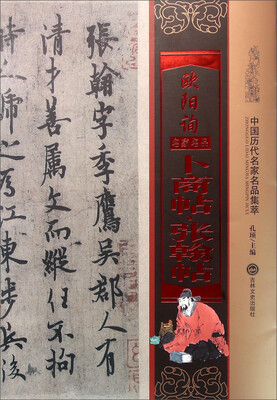 張翰字季鷹吳郡人有
清才善屬文而縱任不拘
時人號之為江東步兵後
欧阳询
名家名品
卜商帖·张翰帖
中国历代名家名品集萃
ZHONGGUO LIDAI MINGJIA MINGPIN JICUI
主编
吉林文史出版社